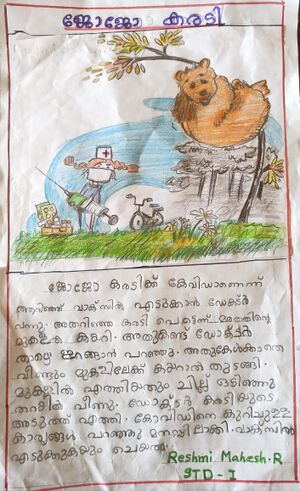 ജോജോ കരടി
ജോജോ കരടിക്ക് കോവിഡാണെന്ന്
അറിഞ്ഞ് വാക്സിൻ എടുക്കാൻ ഡോക്ടർ
വന്നു. അതറിഞ്ഞ കരടി പെട്ടെന്ന് മരത്തിന്റെ
മുകളിൽ കയറി. അതുകണ്ട് ഡോക്ടർ
താഴെ ഇറങ്ങാൻ പറഞ്ഞു. അതുകേൾക്കാതെ
വീണ്ടും മുകളിലേക്ക് കയറാൻ തുടങ്ങി.
മുകളിൽ എത്തിയതും ചില്ല ഒടിഞ്ഞു
തറയിൽ വീണു. ഡോക്ടർ കരടിയുടെ
അടുത്ത് എത്തി. കോവിഡിനെ കുറിച്ചുള്ള
കാര്യങ്ങൾ പറഞ്ഞു മനസ്സിലാക്കി. വാക്സിൻ
എടുക്കുകയും ചെയ്തു.
Reshmi Mahesh.R
STD - I